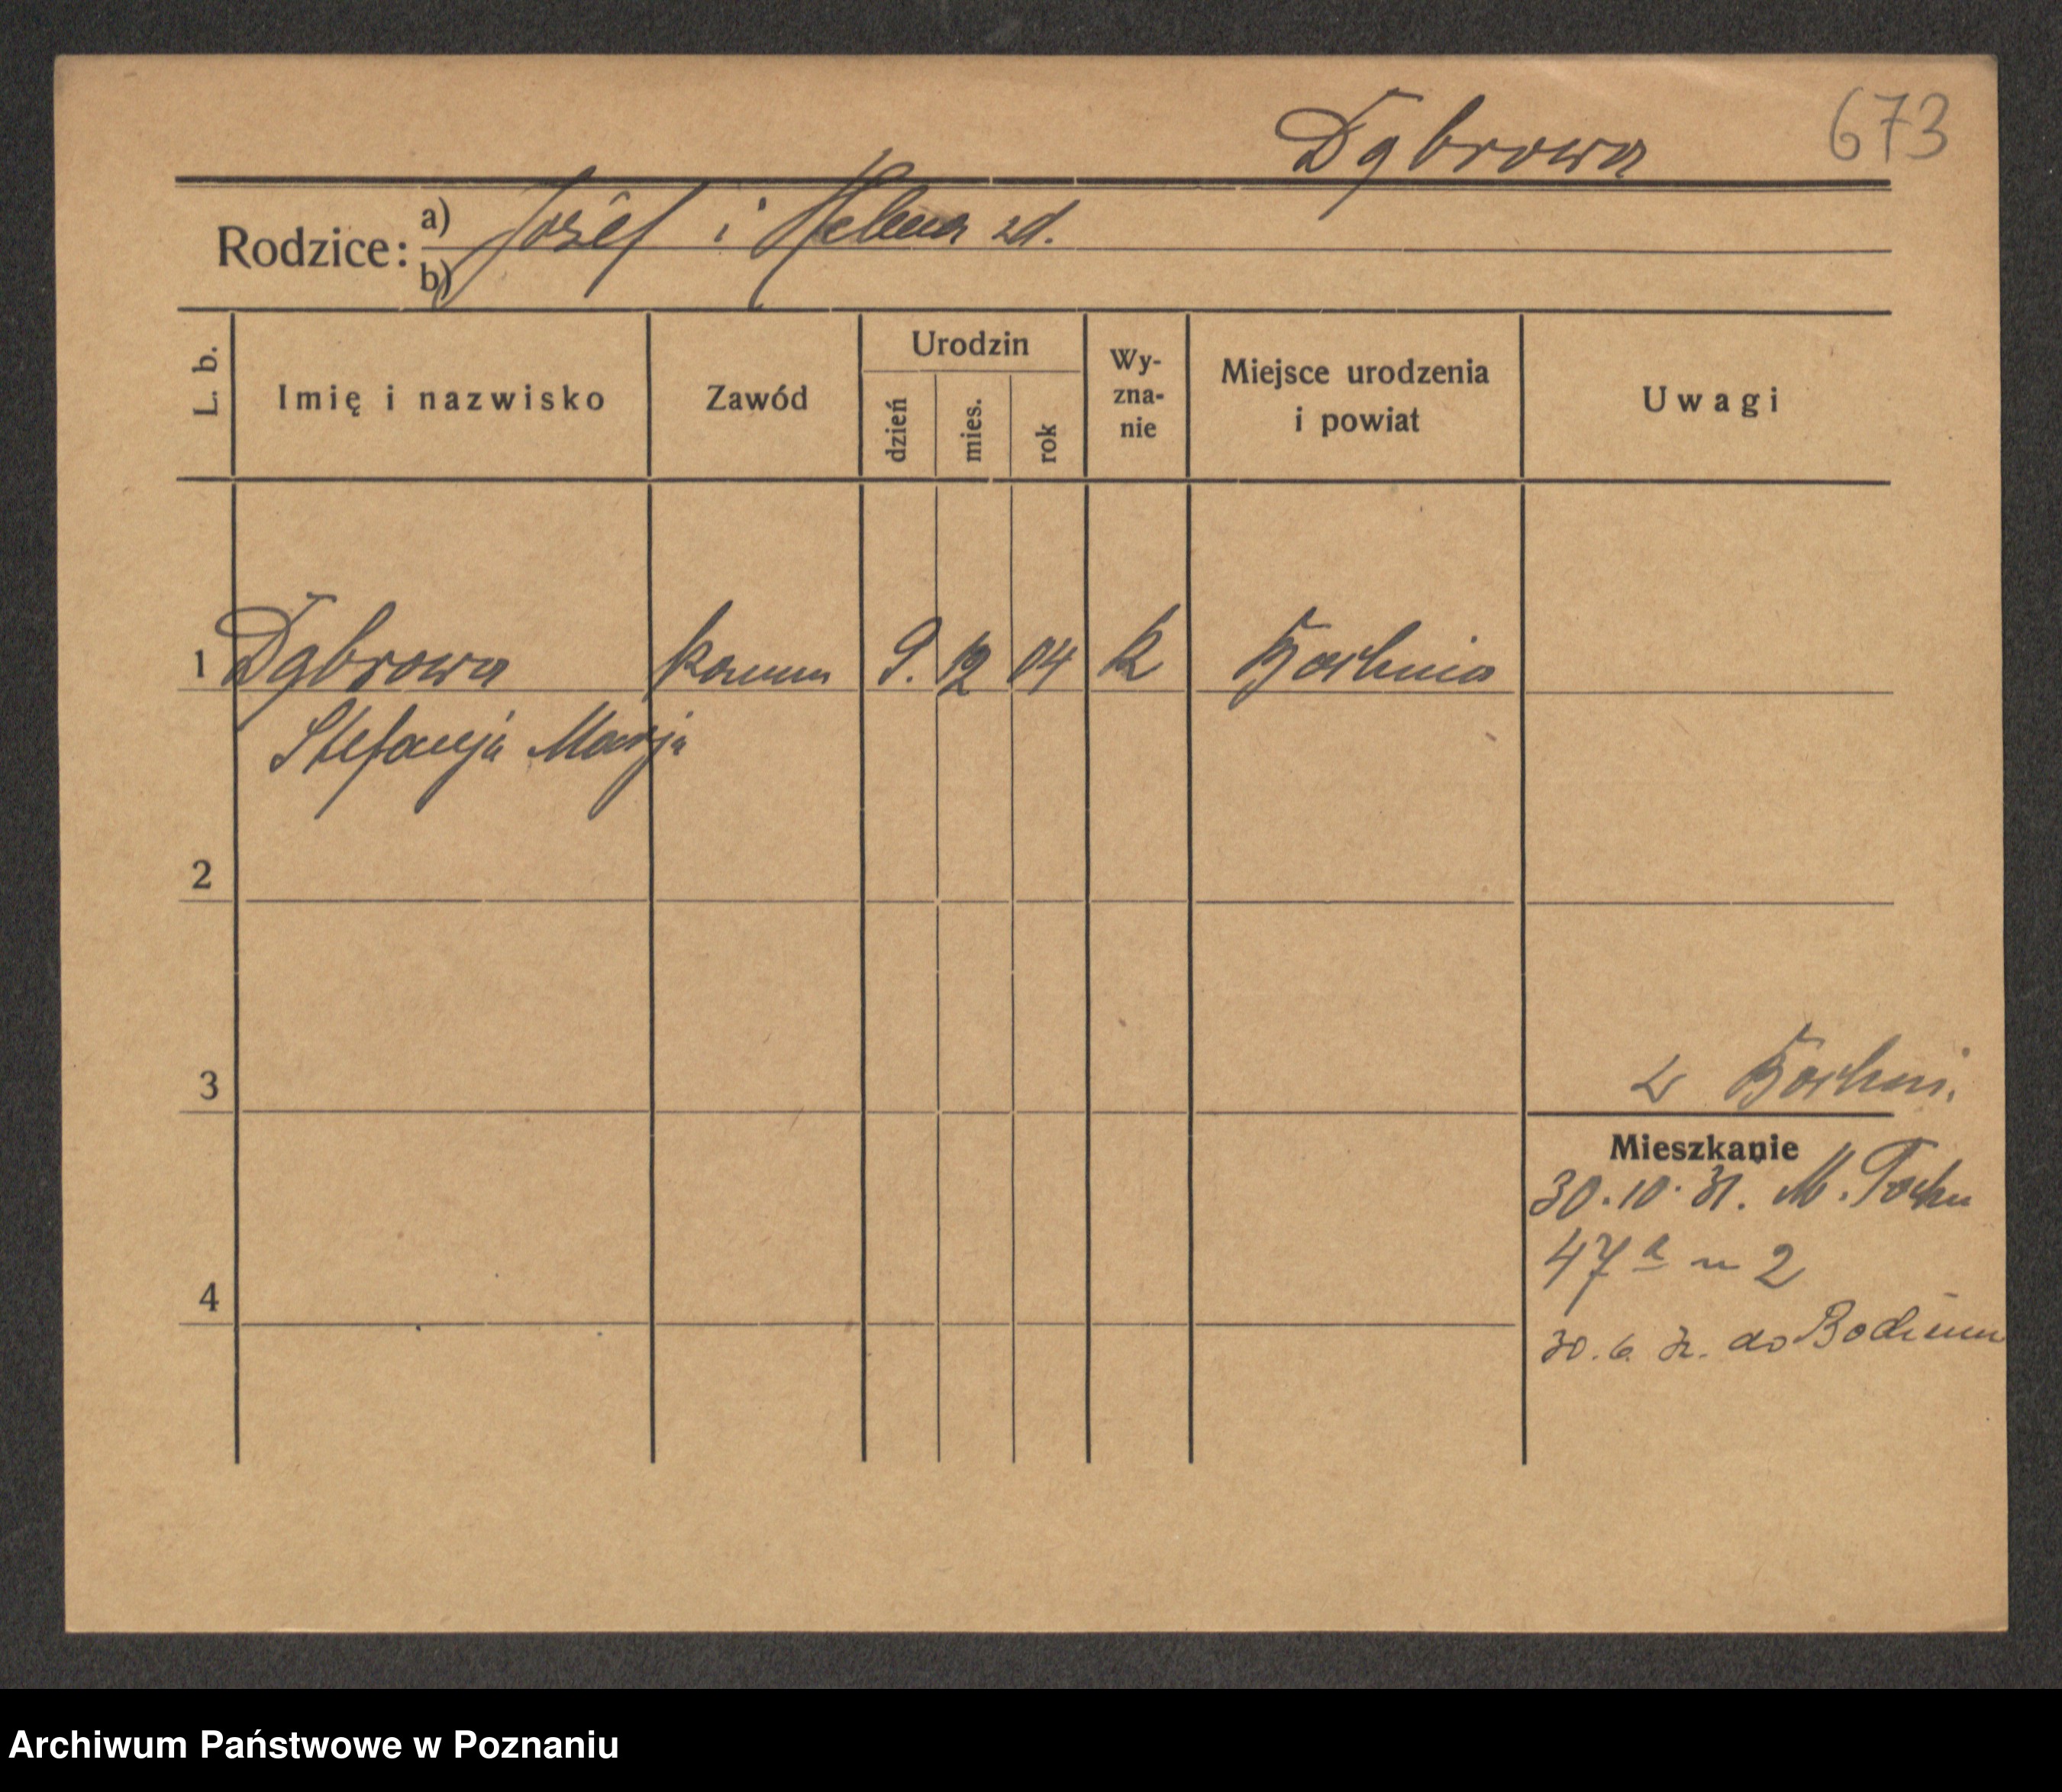 Dąbrowa 673
Rodzice: a) Józef i Helena zd.
b)
L. b. Imię i nazwisko Zawód Urodzin dzień mies. rok Wy-zna-nie Miejsce urodzenia i powiat Uwagi
1 Dąbrowa 9. 12 04 k Bochnia
Stefanja Marja
2
3 z Bochni.
Mieszkanie
30.10.31. M. Focha
47a m 2
4
30. 6. 32. do Bochni
Archiwum Państwowe w Poznaniu